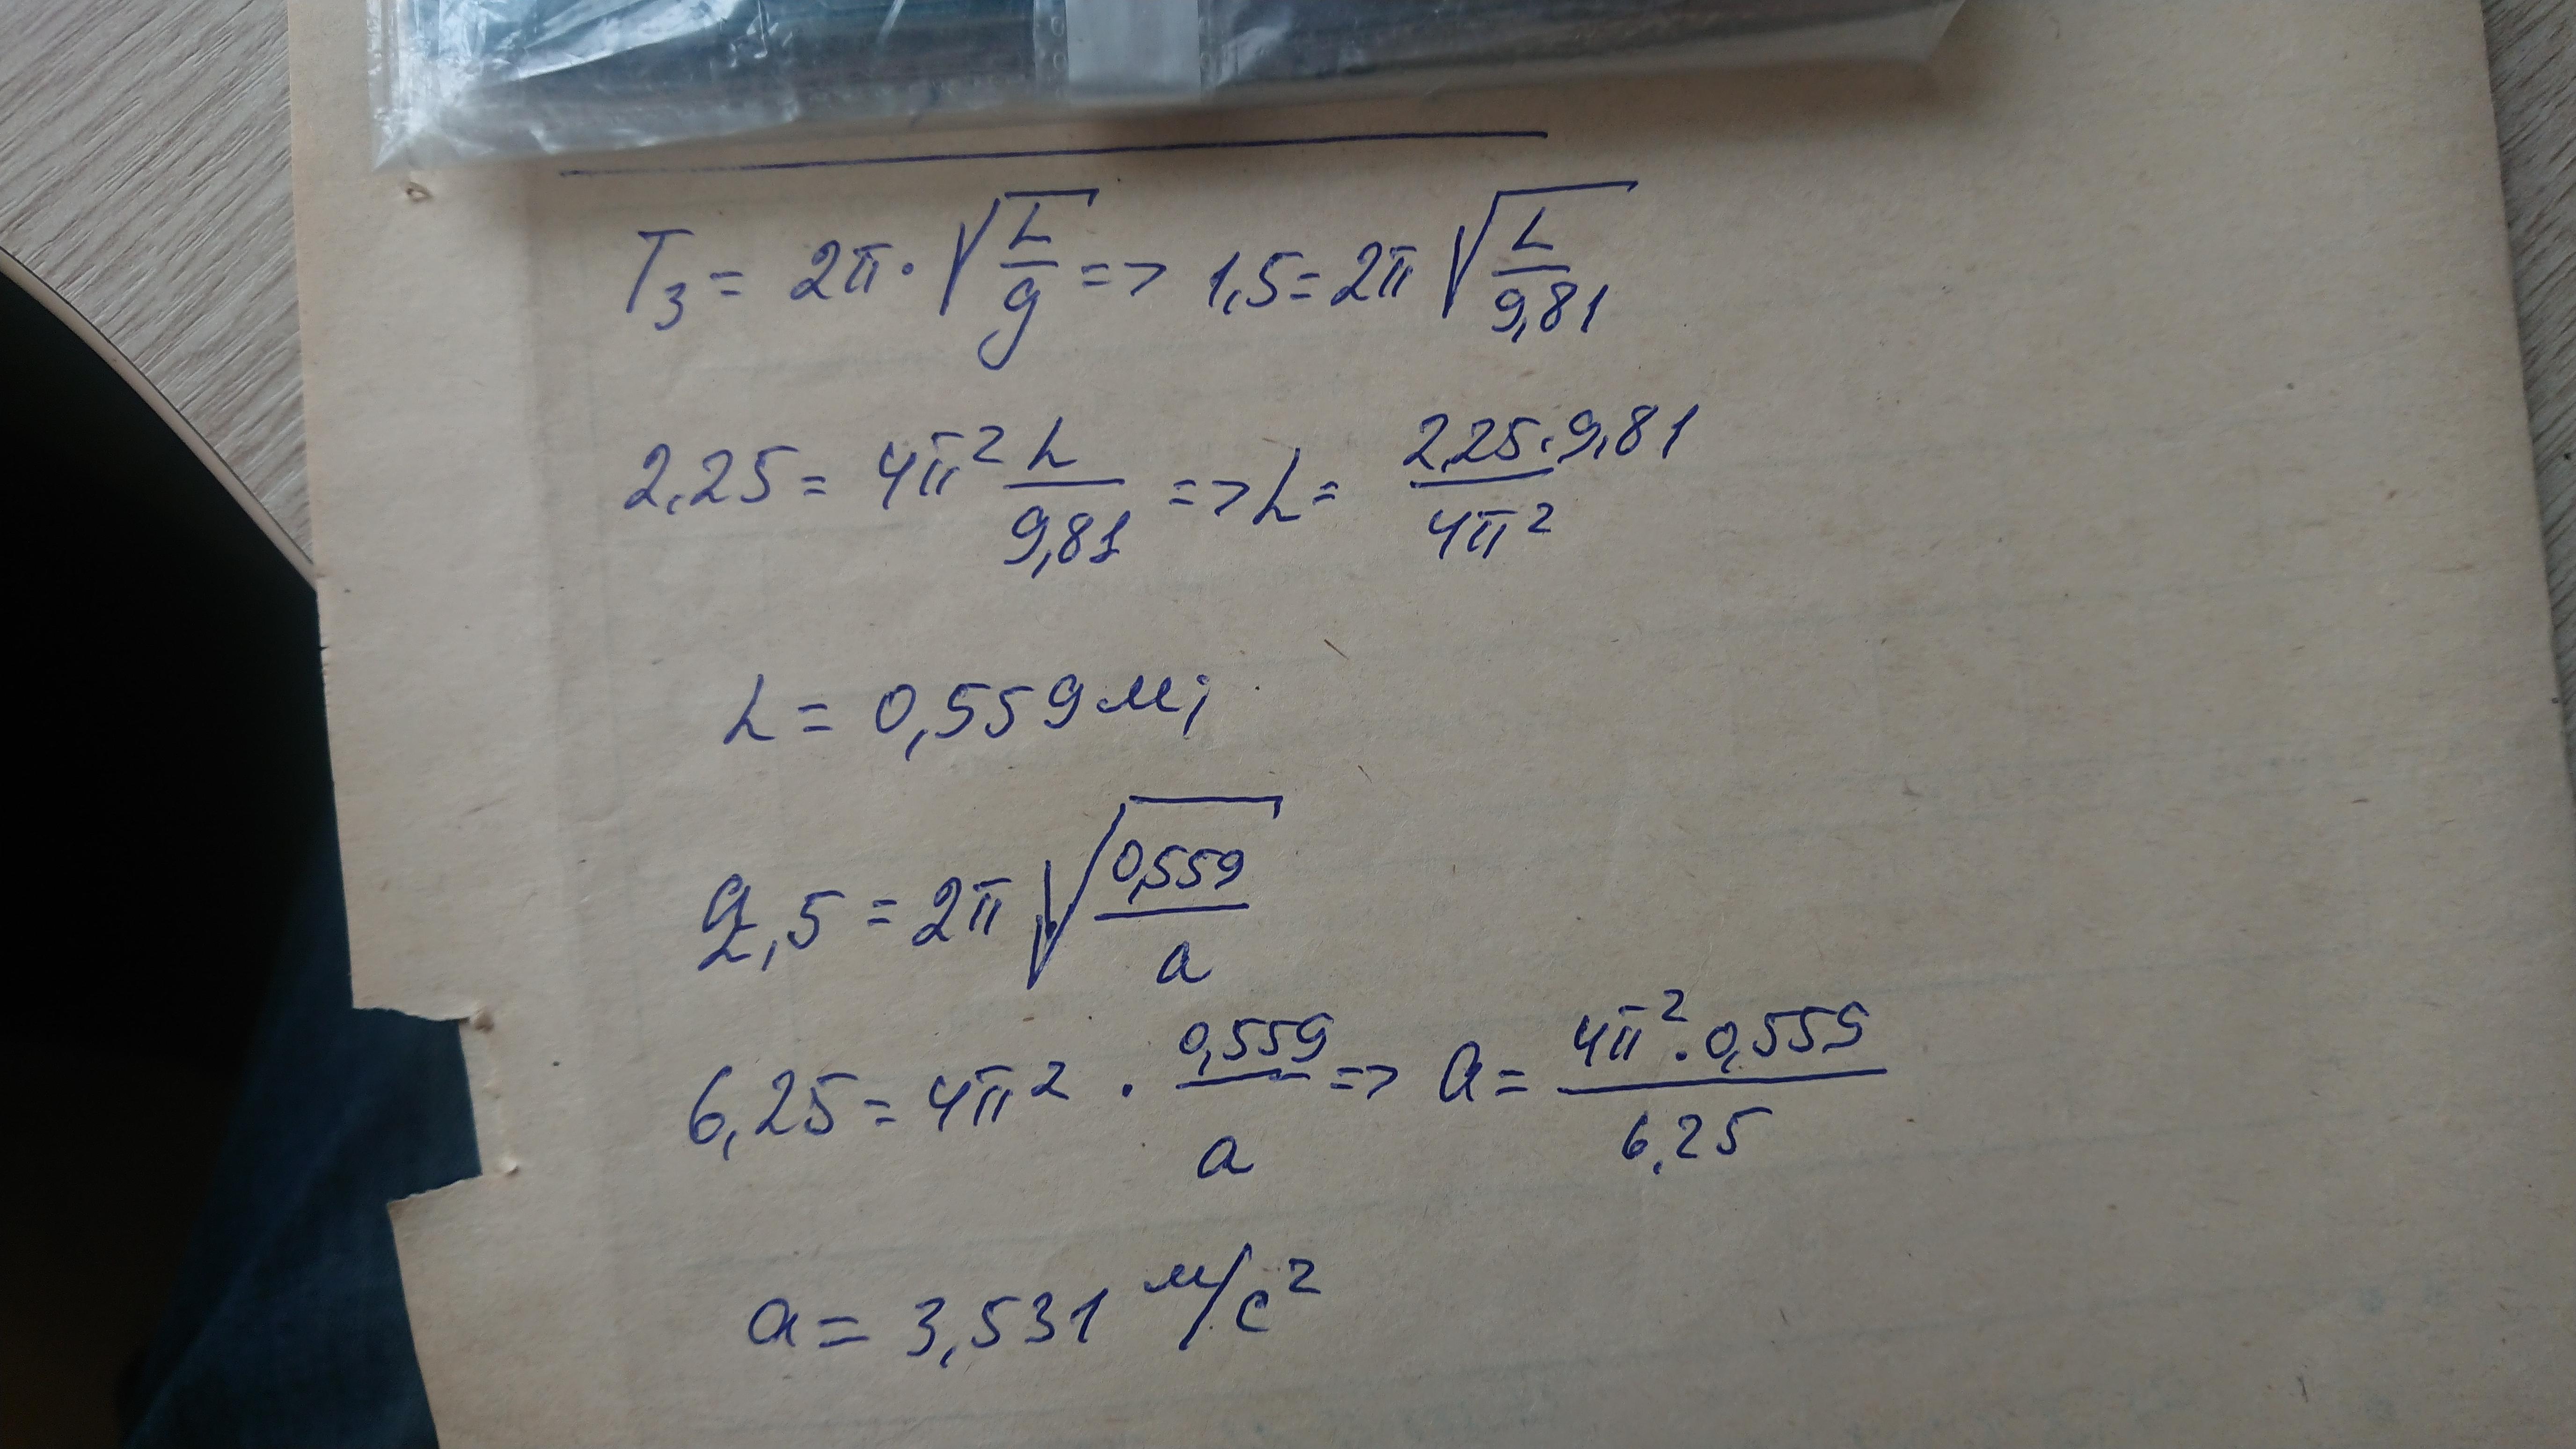 T₃ = 2π · √(L/g) => 1,5 = 2π √(L/9,81)
2,25 = 4π² L/9,81 => L = 2,25 · 9,81 / 4π²
L = 0,559 м;
2,5 = 2π √(0,559/a)
6,25 = 4π² · 0,559/a => a = 4π² · 0,559 / 6,25
a = 3,531 м/с²